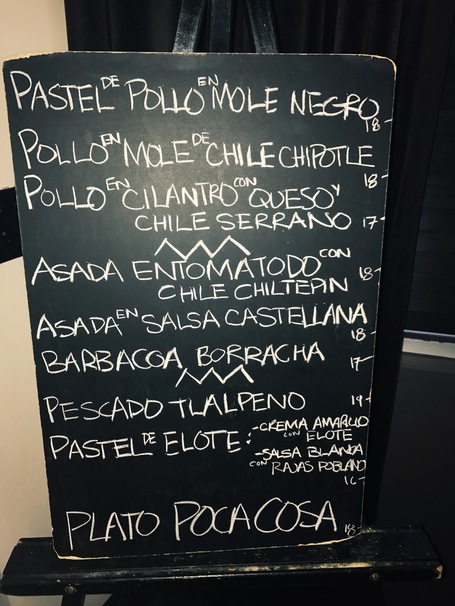 PASTEL DE POLLO EN MOLE NEGRO
18-
POLLO EN MOLE DE CHILE CHIPOTLE
18-
POLLO EN CILANTRO CON QUESO Y
CHILE SERRANO 17-
ASADA ENTOMATODO CON
CHILE CHILTEPIN 18-
ASADA EN SALSA CASTELLANA
18-
BARBACOA BORRACHA 17-
PESCADO TLALPENO 19-
PASTEL DE ELOTE: -CREMA AMARILLO
CON ELOTE
-SALSA BLANCA
CON RAJAS POBLANO
16-
PLATO POCA COSA 18-